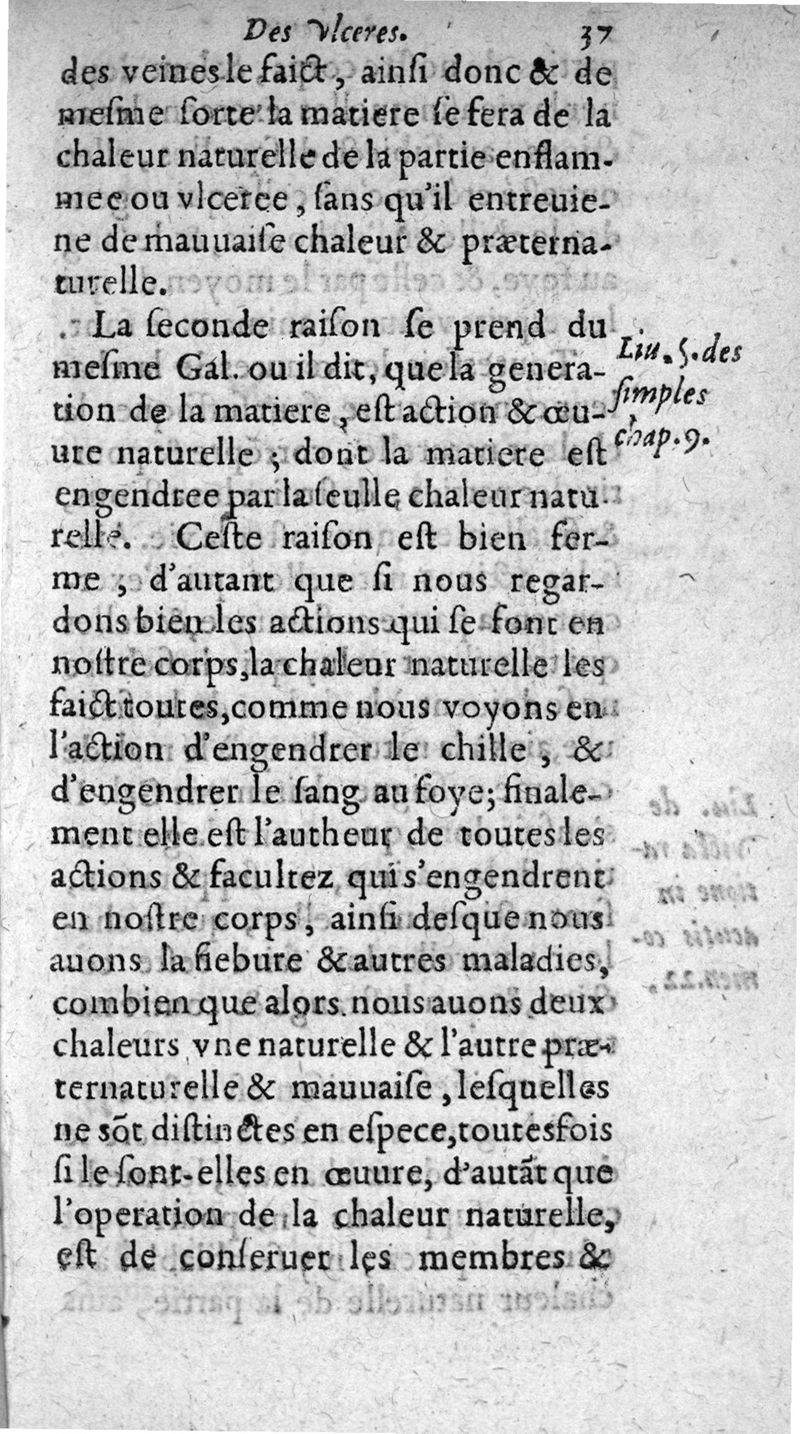 Des Vlceres. 37
des veines le faict, ainſi donc & de
meſme ſorte la matiere ſe fera de la
chaleur naturelle de la partie enflam-
mee ou vlceree, ſans qu'il entreuie-
ne de mauuaiſe chaleur & præterna-
turelle.
La ſeconde raiſon ſe prend du
meſme Gal. ou il dit, que la genera-
tion de la matiere, eſt action & œu-
ure naturelle ; dont la matiere eſt
engendree par la ſeulle chaleur natu-
relle. Ceſte raiſon eſt bien fer-
me , d'autant que ſi nous regar-
dons bien les actions qui ſe font en
noſtre corps, la chaleur naturelle les
faict toutes, comme nous voyons en
l'action d'engendrer le chille , &
d'engendrer le ſang au foye; finale-
ment elle eſt l'autheur de toutes les
actions & facultez qui s'engendrent
en noſtre corps, ainſi deſque nous
auons la fiebure & autres maladies,
combien que alors nous auons deux
chaleurs vne naturelle & l'autre præ-
ternaturelle & mauuaiſe, leſquelles
ne sõt diſtinctes en eſpece, toutesfois
ſi le ſont-elles en œuure, d'autãt que
l'operation de la chaleur naturelle,
eſt de conſeruer les membres &
Liu. 5. des
ſimples
chap. 9.